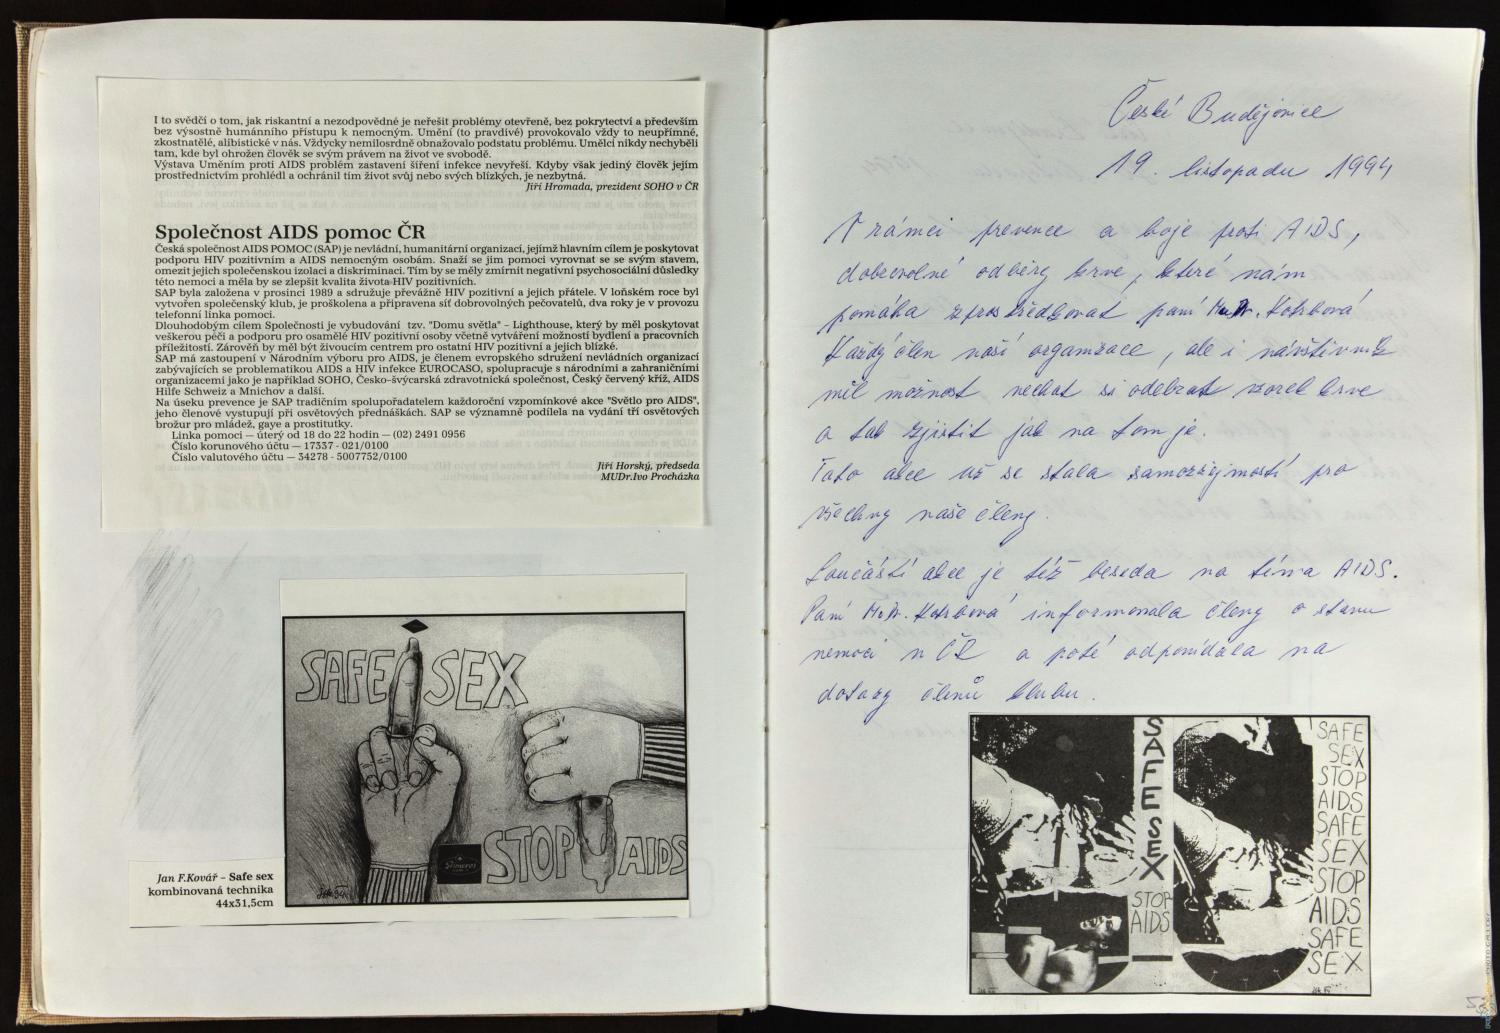 I to svědčí o tom, jak riskantní a nezodpovědné je neřešit problémy otevřeně, bez pokrytectví a především
bez výsostně humánního přístupu k nemocným. Umění (to pravdivé) provokovalo vždy to neupřímné,
zkostnatělé, alibistické v nás. Vždycky nemilosrdně obnažovalo podstatu problému. Umělci nikdy nechyběli
tam, kde byl ohrožen člověk se svým právem na život ve svobodě.
Výstava Uměním proti AIDS problém zastavení šíření infekce nevyřeší. Kdyby však jediný člověk jejím
prostřednictvím prohlédl a ochránil tím život svůj nebo svých blízkých, je nezbytná.
Jiří Hromada, prezident SOHO v ČR
Společnost AIDS pomoc ČR
Česká společnost AIDS POMOC (SAP) je nevládní, humanitární organizací, jejímž hlavním cílem je poskytovat
podporu HIV pozitivním a AIDS nemocným osobám. Snaží se jim pomoci vyrovnat se se svým stavem,
omezit jejich společenskou izolaci a diskriminaci. Tím by se měly zmírnit negativní psychosociální důsledky
této nemoci a měla by se zlepšit kvalita života HIV pozitivních.
SAP byla založena v prosinci 1989 a sdružuje převážně HIV pozitivní a jejich přátele. V loňském roce byl
vytvořen společenský klub, je proškolena a připravena síť dobrovolných pečovatelů, dva roky je v provozu
telefonní linka pomoci.
Dlouhodobým cílem Společnosti je vybudování tzv. "Domu světla" – Lighthouse, který by měl poskytovat
veškerou péči a podporu pro osamělé HIV pozitivní osoby včetně vytváření možností bydlení a pracovních
příležitostí. Zároveň by měl být živoucím centrem pro ostatní HIV pozitivní a jejich blízké.
SAP má zastoupení v Národním výboru pro AIDS, je členem evropského sdružení nevládních organizací
zabývajících se problematikou AIDS a HIV infekce EUROCASO, spolupracuje s národními a zahraničními
organizacemi jako je například SOHO, Česko-švýcarská zdravotnická společnost, Český červený kříž, AIDS
Hilfe Schweiz a Mnichov a další.
Na úseku prevence je SAP tradičním spolupořadatelem každoroční vzpomínkové akce "Světlo pro AIDS",
jeho členové vystupují při osvětových přednáškách. SAP se významně podílela na vydání tří osvětových
brožur pro mládež, gaye a prostitutky.
Linka pomoci — úterý od 18 do 22 hodin — (02) 2491 0956
Číslo korunového účtu — 17337 - 021/0100
Číslo valutového účtu — 34278 - 5007752/0100
Jiří Horský, předseda
MUDr.Ivo Procházka
SAFE SEX
STOP AIDS
Jan F.Kovář – Safe sex
kombinovaná technika
44x31,5cm
České Budějovice
19. listopadu 1994
V rámci prevence a boje proti AIDS,
dobrovolné odběry krve, které nám
pomáhá zprostředkovat paní MuDr. Kotrbová
Každý člen naší organizace, ale i návštivník
měl možnost nechat si odebrat vzorek krve
a tak zjistit jak na tom je.
Tato akce už se stala samozřejmostí pro
všechny naše členy.
Součástí akce je též beseda na téma AIDS.
Paní MuDr. Kotrbová informovala členy o stavu
nemoci v ČR a poté odpovídala na
dotazy členů klubu.
SAFE SEX
STOP
AIDS
SAFE
SEX
STOP
AIDS
SAFE
SEX
STOP
AIDS
SAFE
SEX